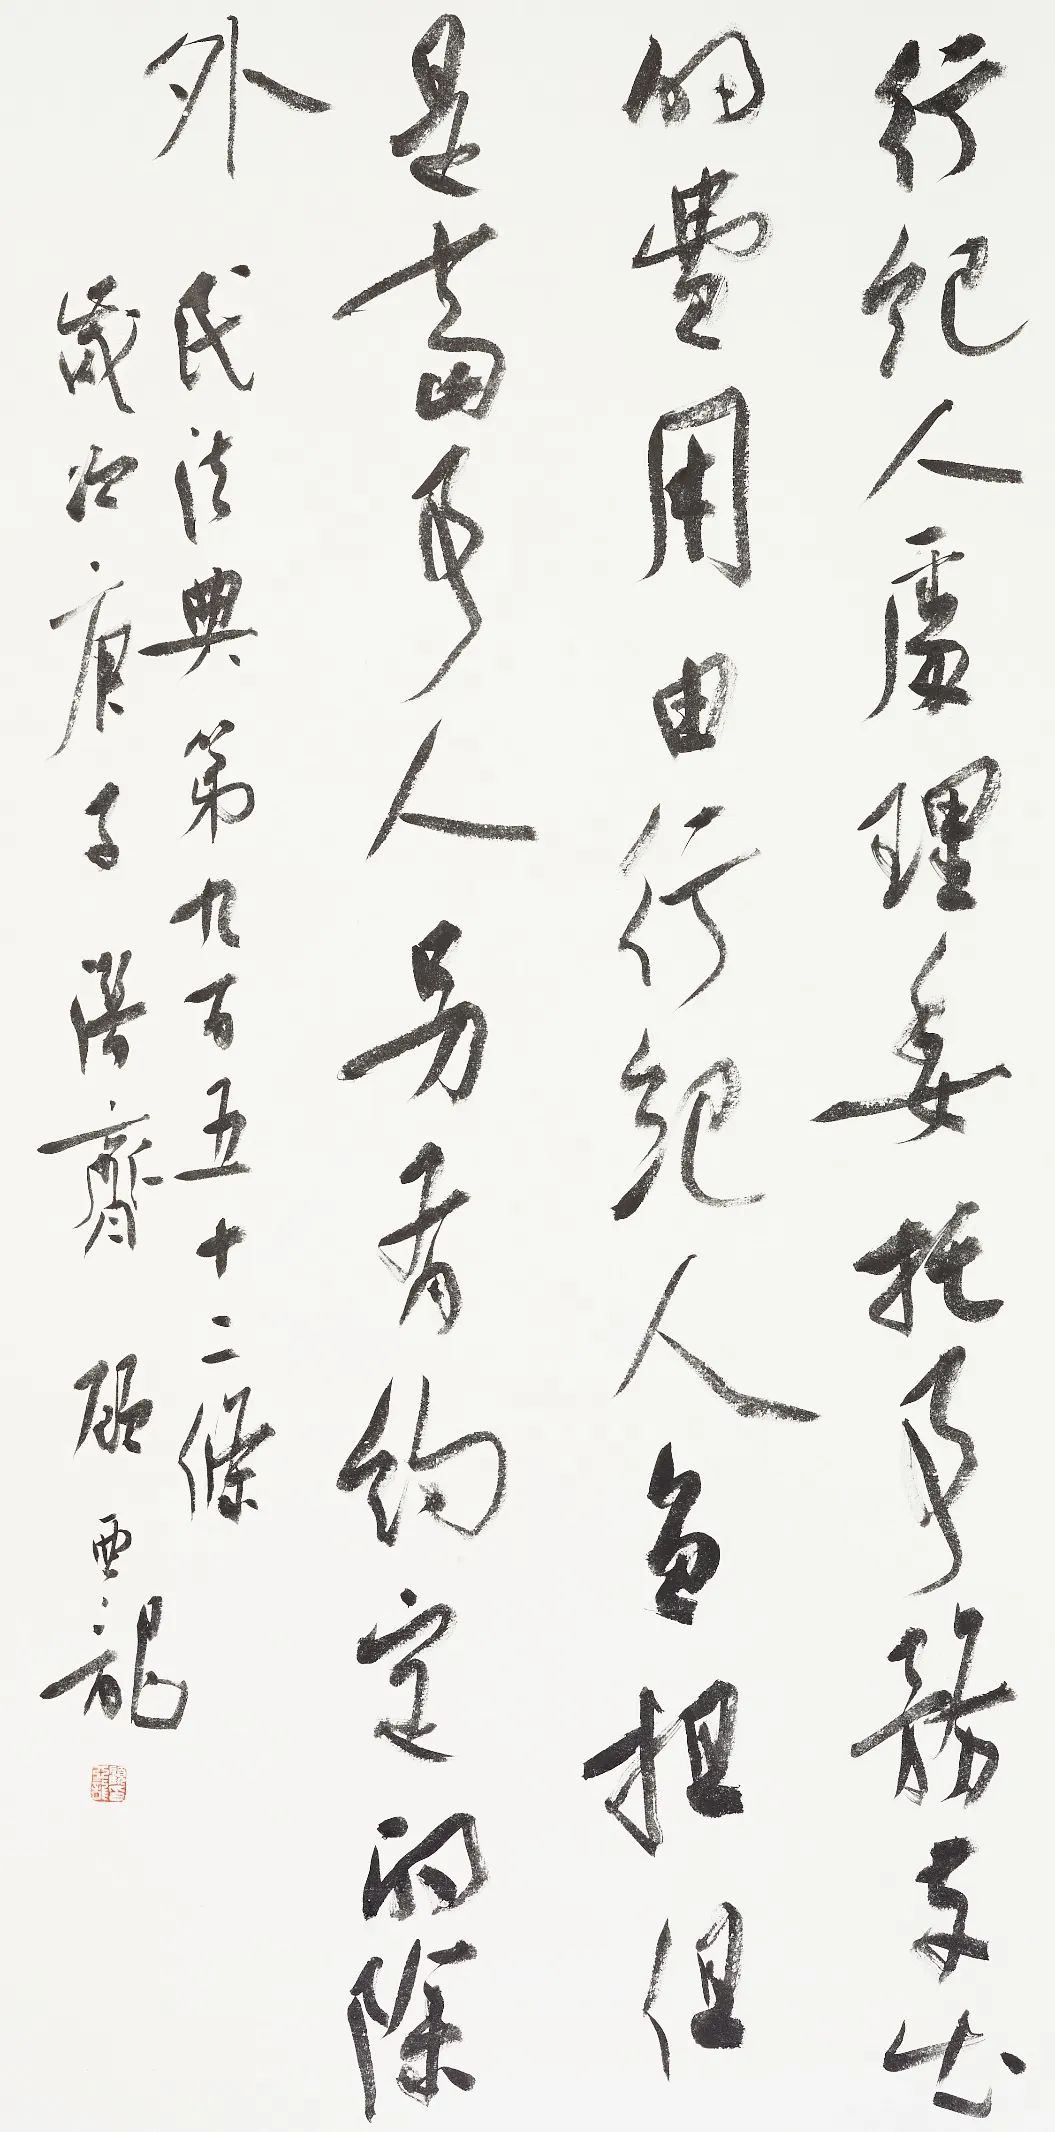 行紀人處理委托事務支出
的費用由行紀人負担但
是當事人另有約定的除
外
民法典第九百五十二條
歲次庚子 濟齋 顧亞龍